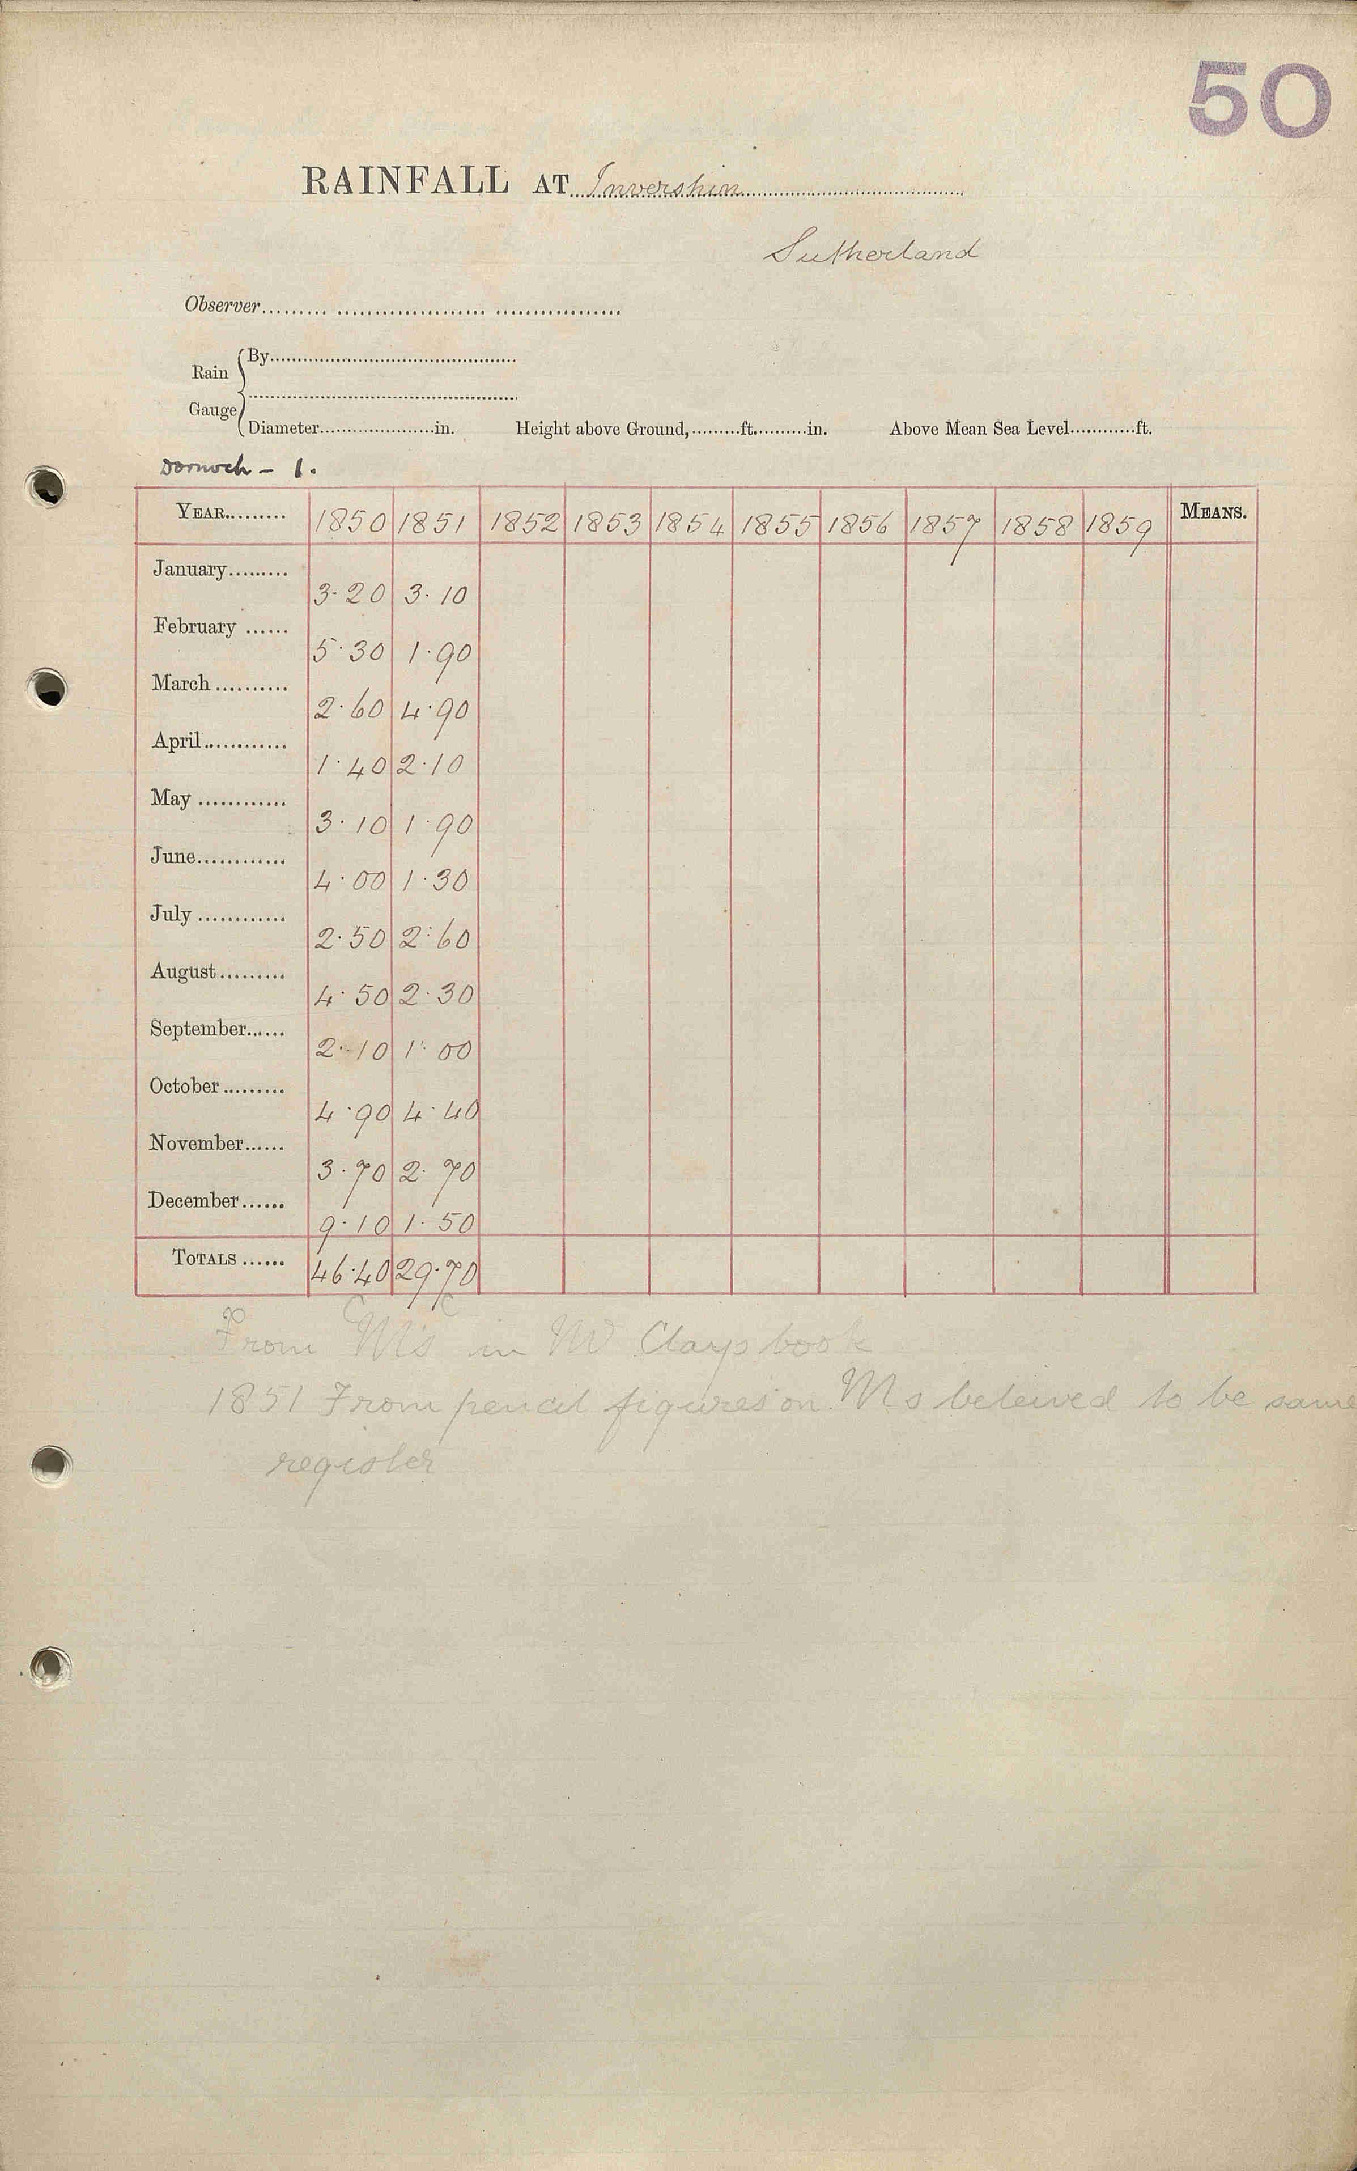 50
RAINFALL AT Invershin
Sutherland
Observer
Rain Gauge
By
Diameter in. Height above Ground, ft. in. Above Mean Sea Level ft.
Dornoch - 1.
YEAR 1850 1851 1852 1853 1854 1855 1856 1857 1858 1859 MEANS.
January 3.20 3.10
February 5.30 1.90
March 2.60 4.90
April 1.40 2.10
May 3.10 1.90
June 4.00 1.30
July 2.50 2.60
August 4.50 2.30
September 2.10 1.00
October 4.90 4.40
November 3.70 2.70
December 9.10 1.50
TOTALS 46.40 29.70
From Ms in Clays book
1851 From pencil figures on Ms beleived to be same
register